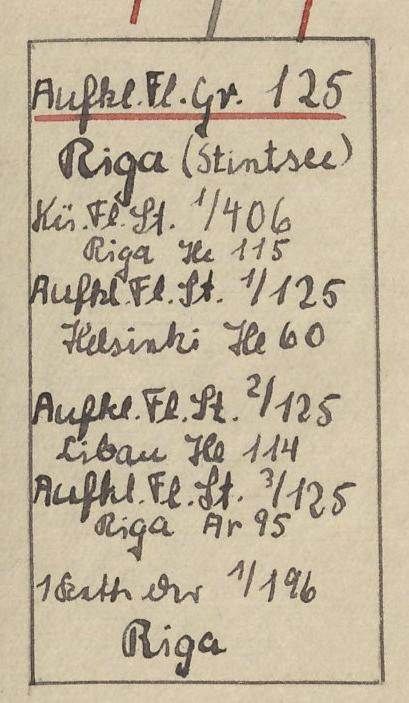 Aufkl.Fl.Gr. 125
Riga (Stintsee)
Kü.Fl.St. 1/406
Riga He 115
Aufkl.Fl.St. 1/125
Helsinki He 60
Aufkl.Fl.St. 2/125
Libau He 114
Aufkl.Fl.St. 3/125
Riga Ar 95
1 der 1/196
Riga